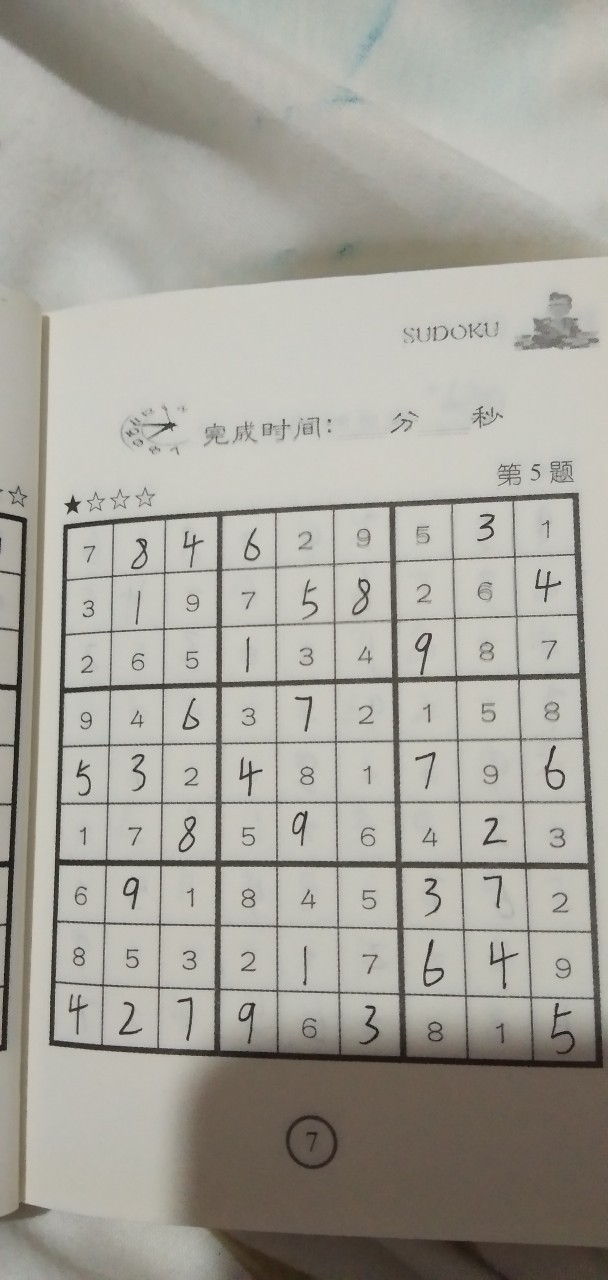 SUDOKU
完成时间:____分____秒
第5题
★☆☆☆
7 8 4 6 2 9 5 3 1
3 1 9 7 5 8 2 6 4
2 6 5 1 3 4 9 8 7
9 4 6 3 7 2 1 5 8
5 3 2 4 8 1 7 9 6
1 7 8 5 9 6 4 2 3
6 9 1 8 4 5 3 7 2
8 5 3 2 1 7 6 4 9
4 2 7 9 6 3 8 1 5
7